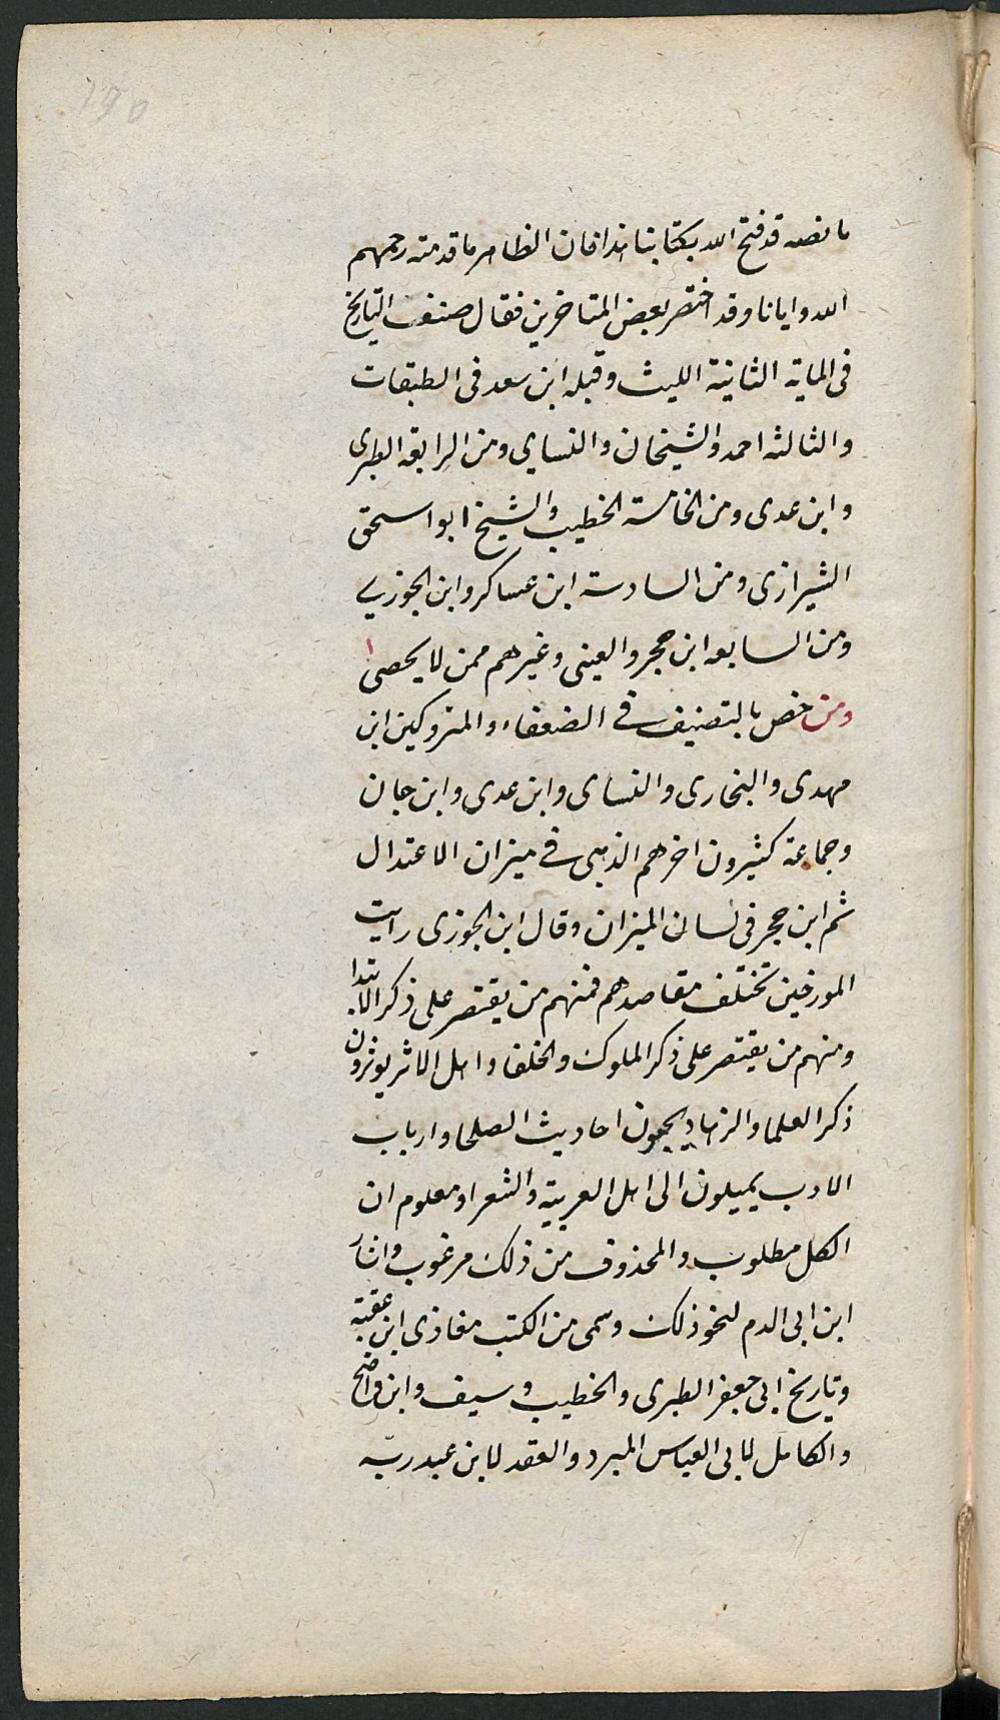 ما نصه قد فتح الله بكتابنا هذا فان الظاهر ما قدمته رحمهم
الله وايانا وقد اختصر بعض المتاخرين فقال صنف التاريخ
فى الماية الثانية الليث وقبله ابن سعد فى الطبقات
والثالثه احمد والشيخان والنساي ومن الرابعة الطبرى
وابن عدى ومن الخامسة الخطيب والشيخ ابو اسحق
الشيرازى ومن السادسة ابن عساكر وابن الجوزي
ومن السابعه ابن حجر والعينى وغيرهم ممن لا يحصى
ومن خص بالتصنيف فى الضعفاء والمتروكين ابن
مهدى والبخارى والنساى وابن عدى وابن حبان
وجماعة كثيرون اخرهم الذهبى فى ميزان الاعتدال
ثم ابن حجر فى لسان الميزان وقال ابن الجوزى رايت
المورخين تختلف مقاصدهم فمنهم من يقتصر على ذكر الابتدا
ومنهم من يقتصر على ذكر الملوك والخلفا واهل الاثر يوثرون
ذكر العلما والزهاد يحبون احاديث الصلحا وارباب
الادب يميلون الى اهل العربية والشعرا ومعلوم ان
الكل مطلوب والمحذوف من ذلك مرغوب واشار
ابن ابى الدم لنحو ذلك وسمى من الكتب مغازى ابن عقبة
وتاريخ ابى جعفر الطبرى والخطيب وسيف وابن واضح
والكامل لابى العباس المبرد والعقد لابن عبد ربه